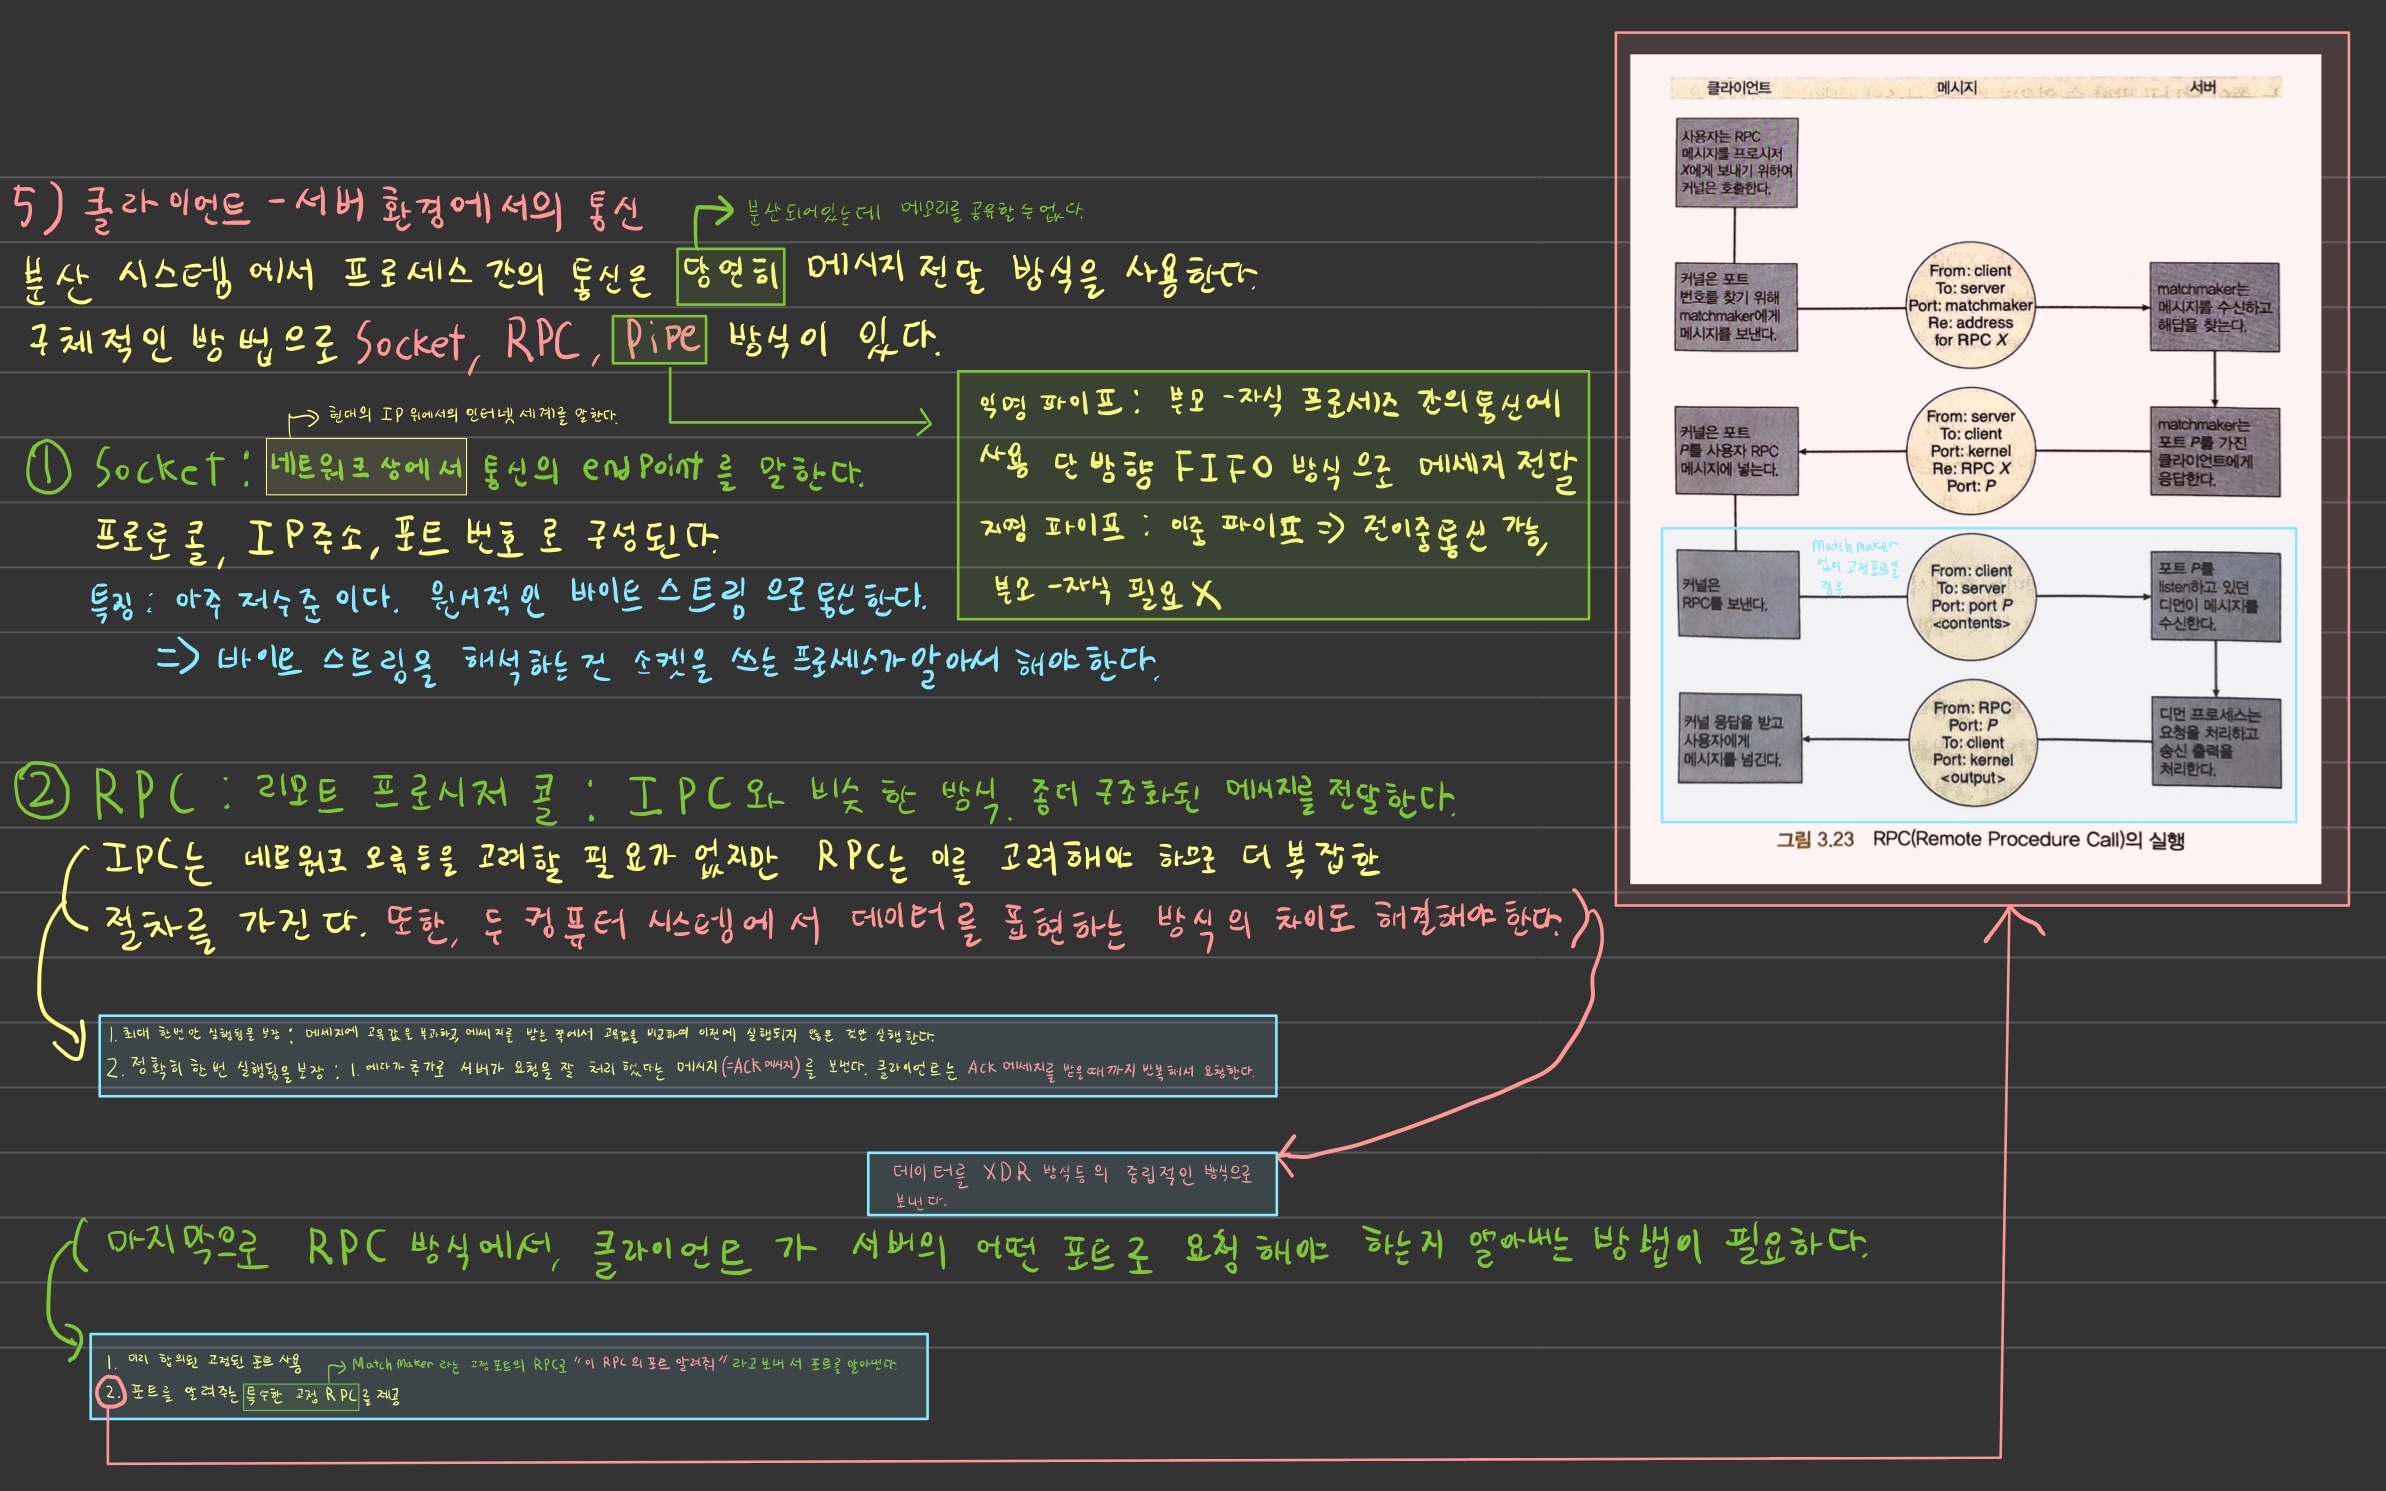 5) 클라이언트 - 서버 환경에서의 통신
분산되어있는데 메모리를 공유할 수 없다.
분산 시스템에서 프로세스 간의 통신은 당연히 메시지 전달 방식을 사용한다.
구체적인 방법으로 Socket, RPC, Pipe 방식이 있다.
익명 파이프 : 부모 - 자식 프로세스 간의 통신에
사용 단방향 FIFO 방식으로 메세지 전달
지명 파이프 : 이중 파이프 => 전이중통신 가능,
부모 - 자식 필요 X
현대의 IP 위에서의 인터넷 세계를 말한다.
① Socket : 네트워크 상에서 통신의 endpoint를 말한다.
프로토콜, IP주소, 포트 번호로 구성된다.
특징 : 아주 저수준이다. 원시적인 바이트 스트림으로 통신한다.
=> 바이트 스트림을 해석하는 건 소켓을 쓰는 프로세스가 알아서 해야한다.
② RPC : 리모트 프로시저 콜 : IPC와 비슷한 방식. 좀더 구조화된 메시지를 전달한다.
IPC는 네트워크 오류등을 고려할 필요가 없지만 RPC는 이를 고려해야 하므로 더 복잡한
절차를 가진다. 또한, 두 컴퓨터 시스템에서 데이터를 표현하는 방식의 차이도 해결해야한다.
1. 최대 한번만 실행됨을 보장 : 메세지에 고유값을 부과하고, 메세지를 받는 쪽에서 고유값을 비교하여 이전에 실행되지 않은 것만 실행한다.
2. 정확히 한번 실행됨을 보장 : 1. 에다가 추가로 서버가 요청을 잘 처리 했다는 메시지(=ACK 메시지)를 보낸다. 클라이언트는 ACK 메세지를 받을때까지 반복해서 요청한다.
데이터를 XDR 방식등의 중립적인 방식으로
보낸다.
마지막으로 RPC 방식에서, 클라이언트가 서버의 어떤 포트로 요청해야 하는지 알아내는 방법이 필요하다.
1. 미리 합의된 고정된 포트 사용
Match Maker 라는 고정 포트의 RPC로 "이 RPC의 포트 알려줘" 라고 보내서 포트를 알아낸다.
2. 포트를 알려주는 특수한 고정 RPC를 제공
클라이언트 메시지 서버
사용자는 RPC
메시지를 프로시저
X에게 보내기 위하여
커널은 호출한다.
커널은 포트
번호를 찾기 위해
matchmaker에게
메시지를 보낸다.
From: client
To: server
Port: matchmaker
Re: address
for RPC X
matchmaker는
메시지를 수신하고
해답을 찾는다.
커널은 포트
P를 사용자 RPC
메시지에 넣는다.
From: server
To: client
Port: kernel
Re: RPC X
Port: P
matchmaker는
포트 P를 가진
클라이언트에게
응답한다.
Match maker
없이 고정포트일
경우
커널은
RPC를 보낸다.
From: client
To: server
Port: port P
<contents>
포트 P를
listen하고 있던
디먼이 메시지를
수신한다.
커널 응답을 받고
사용자에게
메시지를 넘긴다.
From: RPC
Port: P
To: client
Port: kernel
<output>
디먼 프로세스는
요청을 처리하고
송신 출력을
처리한다.
그림 3.23 RPC(Remote Procedure Call)의 실행